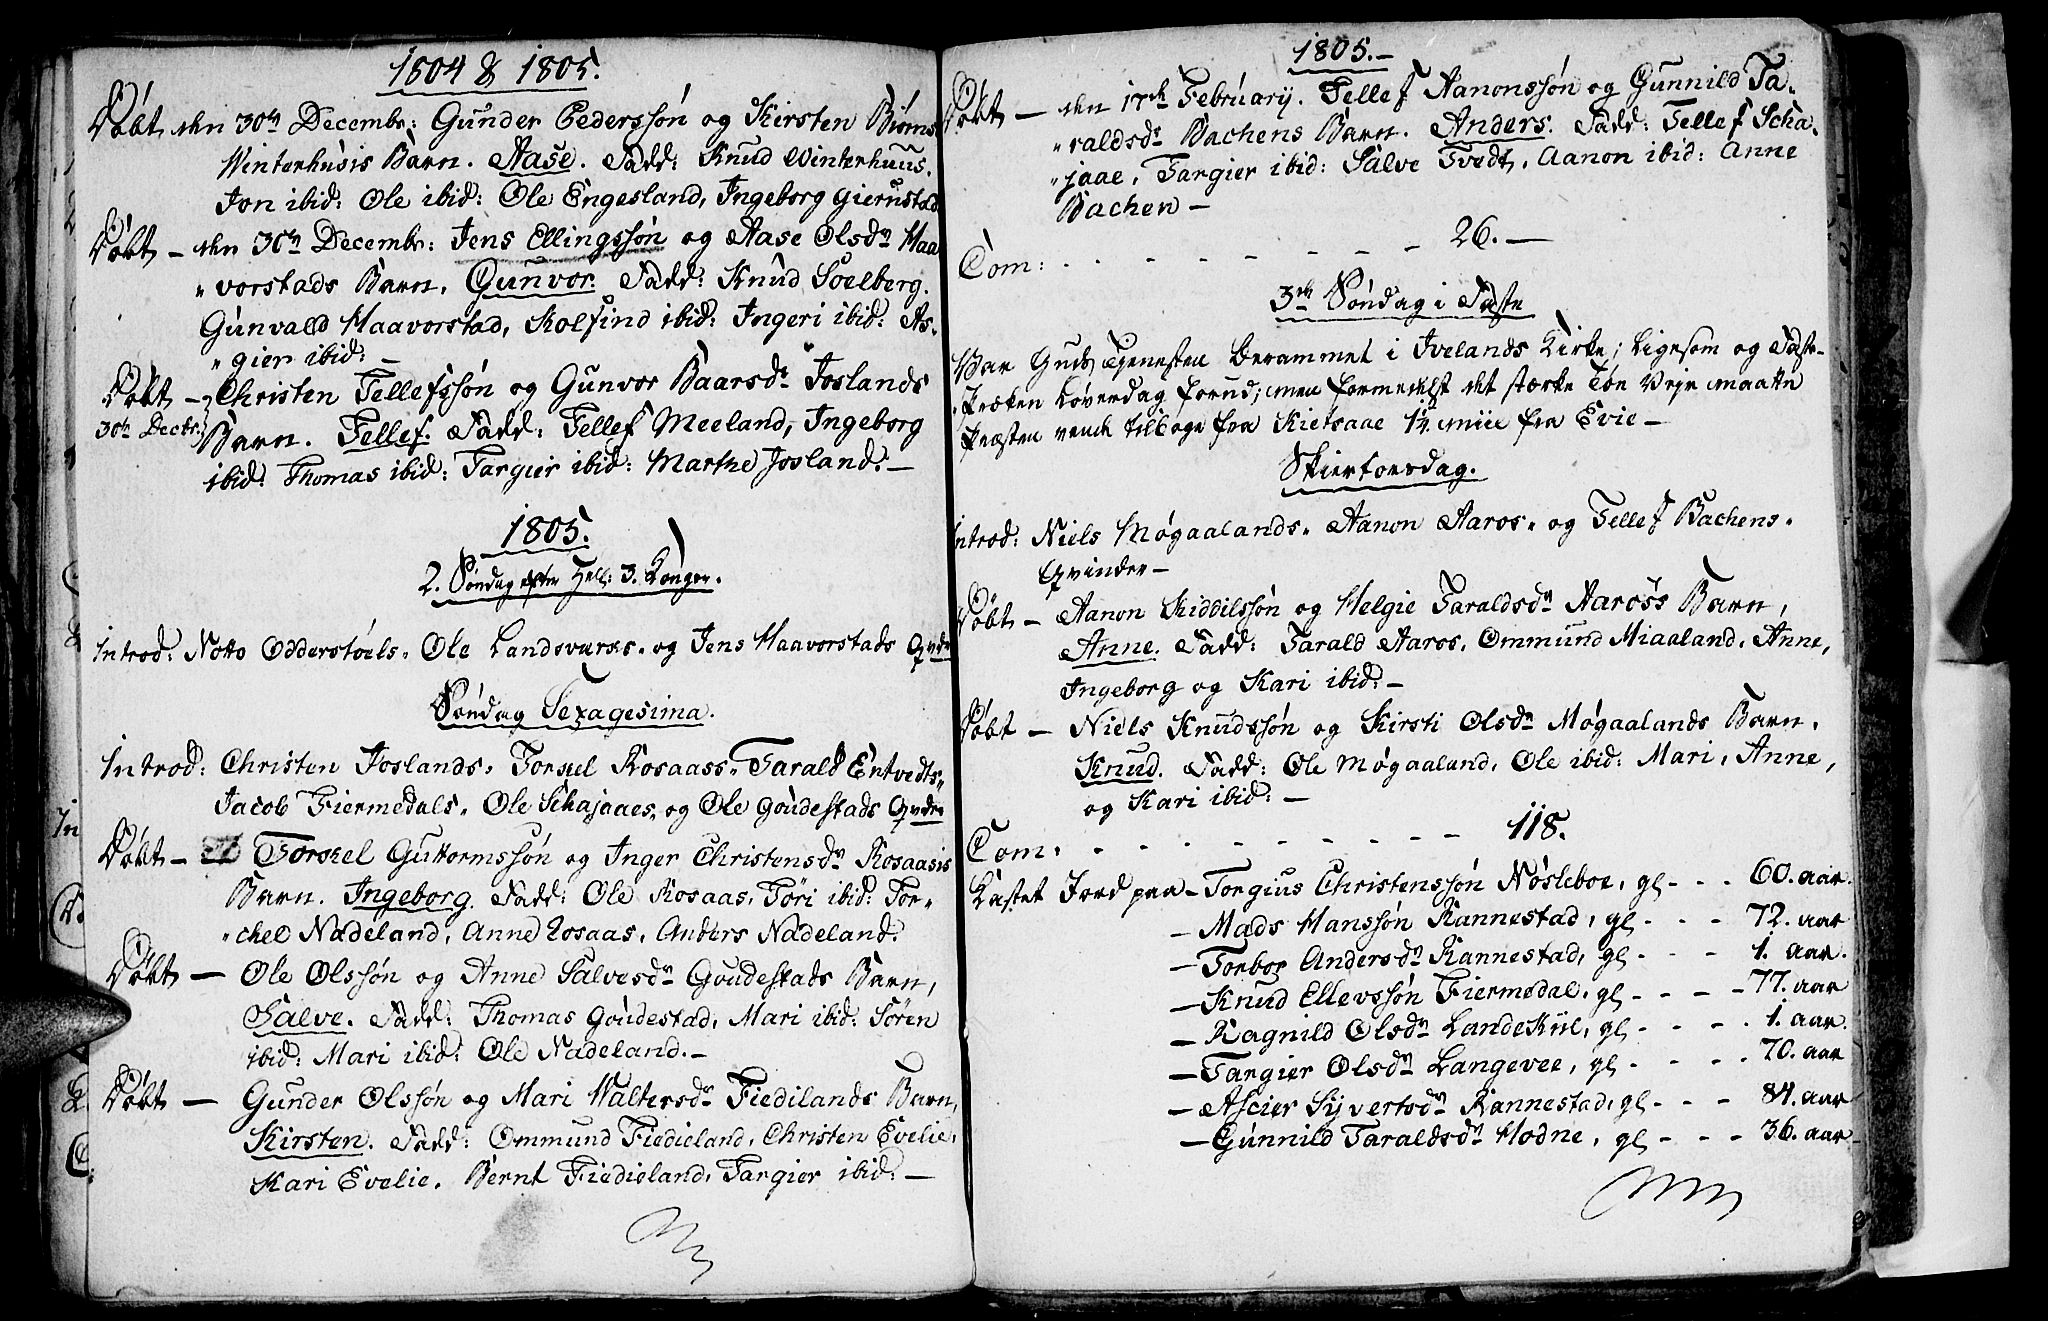 1804 & 1805.
Döbt den 30te Decembr: Gunder Pederssön og Kirsten Biörns
Winterhusis Barn. Aase. Fadd: Knud Winterhuus.
Jon ibid: Ole ibid: Ole Engesland, Ingeborg Giernstad
Döbt – den 30te Decembr: Jens Ellingssön og Aase Olsdr Haa
„vorstads Barn. Gunvor. Fadd: Knud Soelberg.
Gunvald Haavorstad, Kolfind ibid: Ingeri ibid: As-
„gier ibid: –
Döbt – Christen Tellefssön og Gunvor Baarsdr Joslands
30te Decbr. Barn. Tellef. Fadd: Tellef Meeland, Ingeborg
ibid: Thomas ibid: Targier ibid: Marthe Josland. –
1805.
2. Söndag efter Hell: 3. Konger.
Introd: Notto Odderstöels, Ole Landsverks, og Jens Haavorstads Qvdr
Söndag Sexagesima.
Introd: Christen Joslands, Torkel Rosaass, Tarald Entvedts,
Jacob Fiermedals, Ole Schajaaes, og Ole Goudestads Qvdr
Döbt – Torkel Guttormssön og Inger Christensdr Rosaasis
Barn. Ingeborg. Fadd: Ole Rosaas, Töri ibid: Tor-
„chel Nadeland, Anne Rosaas, Anders Nadeland.
Döbt – Ole Olssön og Anne Salvesdr Goudestads Barn,
Salve. Fadd: Thomas Goudestad, Mari ibid: Sören
ibid: Mari ibid: Ole Nadeland. –
Döbt – Gunder Olssön og Mari Waltersdr Fiedilands Barn,
Kirsten. Fadd: Ommund Fiedieland, Christen Evelie,
Kari Evelie. Bernt Fiedieland, Targier ibid: –
1805. –
Döbt – den 17de Februarij. Tellef Aanonssön og Gunnild Ta-
„raldsdr Bachens Barn. Anders. Fadd: Tellef Scha-
„jaae, Targier ibid: Salve Tvedt, Aanon ibid: Anne
Bachen –
Com: - - - - - - - - 26. –
3de Söndag i Faste
Var Guds Tjenesten berammet i Ivelands Kirke; ligesom og Faste-
Præken Löverdag forud; men formedelst det stærke Töe Vejr maatte
Præsten vende tilbage fra Kietsaae 1½ miil fra Evie –
Skiertorsdag.
Introd: Niels Mögaalands, Aanon Aaros, og Tellef Bachens,
Qvinder –
Döbt – Aanon Kiddilssön og Helgie Taraldsdr Aaross Barn,
Anne. Fadd: Tarald Aaros, Ommund Miaaland, Anne,
Ingeborg og Kari ibid: –
Döbt – Niels Knudssön og Kirsti Olsdr Mögaalands Barn,
Knud. Fadd: Ole Mögaaland, Ole ibid: Mari, Anne,
og Kari ibid: –
Com: - - - - - - - - 118.
Kastet Jord paa – Torgius Christenssön Nösleboe, gl - - - 60. aar.
– Mads Hanssön Rannestad, gl - - - 72. aar
– Torbor Andersdr Rannestad, gl - - - 1. aar.
– Knud Ellevssön Fiermedal, gl - - - - 77. aar
– Ragnild Olsdr Landekiil, gl - - - - 1. aar.
– Targier Olsdr Langevee, gl - - - - 70. aar
– Ascier Syvertsdr Rannestad, gl - - - 84. aar
– Gunnild Taraldsdr Hodne, gl - - - 36. aar